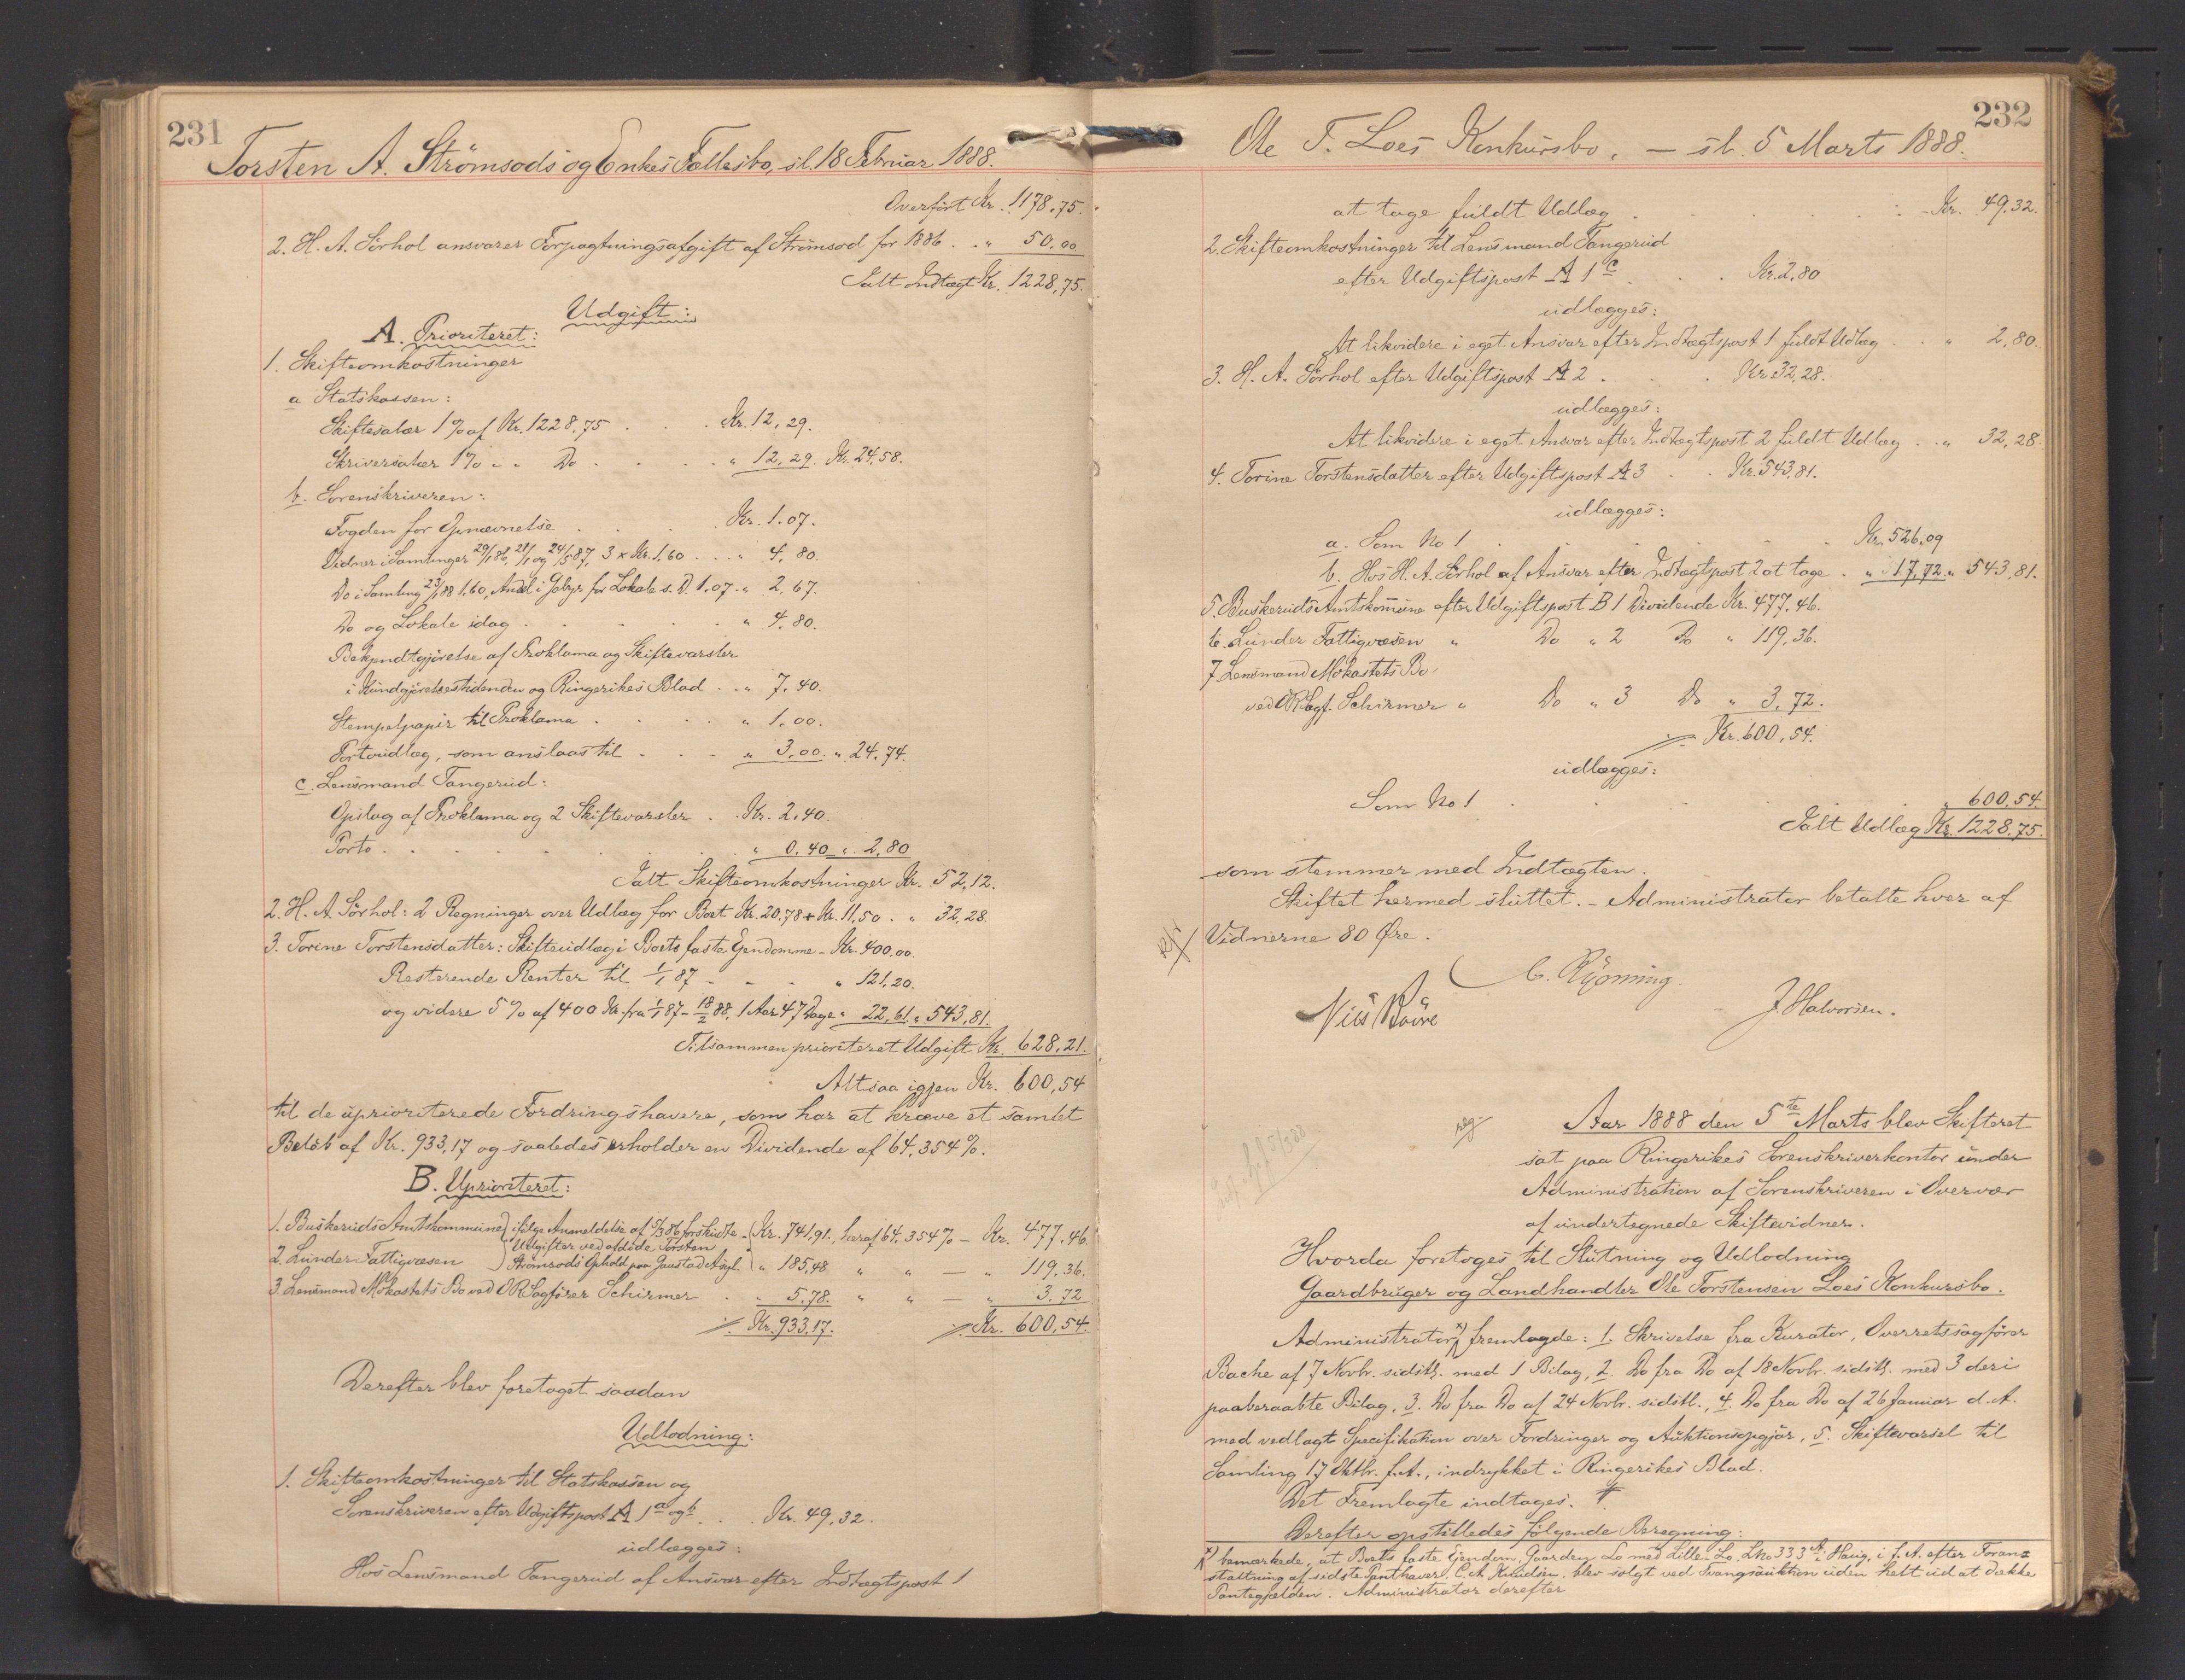 231
Torsten A. Strömsods og Enkes Fællesbo, sl. 18 Februar 1888.
Overført Kr. 1178,75.
2. H. A. Sörhol ansvarer Forpagtningsafgift af Strömsod for 1886 . . „ 50,00
Ialt Indtægt Kr. 1228,75.
Udgift:
A. Prioriteret:
1. Skifteomkostninger
a Statskassen:
Skiftesalær 1 % af Kr. 1228,75 . . . Kr. 12,29.
Skriversalær 1 % „ „ Do . . . „ 12,29. Kr. 24,58.
b. Sorenskriveren:
Fogden for Opnævnelse . . . Kr. 1.07.
Vidner i Samlinger 29/1 86, 21/1 og 24/5 87, 3 x Kr. 1,60 . . . „ 4,80.
Do i Samling 23/1 88 1.60, Andel i Gebyr for Lokale s. D. 1.07 „ 2,67.
Do og Lokale idag . . . . . „ 4,80.
Bekjendtgjörelse af Proklama og Skiftevarsler
i Kundgjörelsestidenden og Ringerikes Blad . . „ 7,40.
Stempelpapir til Proklama . . . . „ 1,00.
Portoudlæg, som anslaaes til . . . „ 3,00. „ 24,74.
c. Lensmand Tangerud:
Opslag af Proklama og 2 Skiftevarsler . . Kr. 2,40.
Porto . . . . . . „ 0,40 „ 2,80
Ialt Skifteomkostninger Kr. 52,12.
2. H. A. Sörhol: 2 Regninger over Udlæg for Boet Kr. 20.78 + Kr. 11,50 . „ 32,28.
3. Torine Torstensdatter: Skifteudlæg i Boets faste Eiendomme - Kr. 400,00.
Resterende Renter til 1/1 87 - - - „ 121,20.
og videre 5 % af 400 Kr. fra 1/1 87 - 18/2 88, 1 Aar 47 Dage „ 22,61. „ 543,81.
Tilsammen prioriteret Udgift Kr. 628,21.
Altsaa igjen Kr. 600,54
til de uprioriterede Fordringshavere, som har at kræve et samlet
Belöb af Kr. 933,17 og saaledes erholder en Dividende af 64,354 %.
B. Uprioriteret:
1. Buskeruds Amtskommune ifölge Anmeldelse af 5/3 86 forskudte - Kr. 741,91., heraf 64,354 % — Kr. 477,46.
Udgifter ved afdöde Torsten
2. Lunder Fattigvæsen Strömsods Ophold paa Gaustad Asyl. „ 185,48 „ „ — „ 119,36.
3. Lensmand Mokastets Bo ved ORSagförer Schirmer . „ 5,78. „ „ — „ 3,72
Kr. 933,17. Kr. 600,54.
Derefter blev foretaget saadan
Udlodning:
1. Skifteomkostninger til Statskassen og
Sorenskriveren efter Udgiftspost A 1 a og b . . Kr. 49,32.
udlægges:
Hos Lensmand Tangerud af Ansvar efter Indtægtspost 1
232
Ole T. Loes Konkursbo. — sl. 5 Marts 1888.
at tage fuldt Udlæg . . . . . Kr. 49,32.
2. Skifteomkostninger til Lensmand Tangerud
efter Udgiftspost A 1 c . . . Kr. 2,80
udlægges:
At likvidere i eget Ansvar efter Indtægtspost 1 fuldt Udlæg . . „ 2,80.
3. H. A. Sörhol efter Udgiftspost A 2 . . . Kr. 32,28.
udlægges:
At likvidere i eget Ansvar efter Indtægtspost 2 fuldt Udlæg . . „ 32,28.
4. Torine Torstensdatter efter Udgiftspost A 3 . . Kr. 543,81.
udlægges:
a. Som No 1 . . . . Kr. 526,09
b. Hos H. A. Sörhol af Ansvar efter Indtægtspost 2 at tage . „ 17,72. „ 543,81.
5. Buskeruds Amtskommune efter Udgiftspost B 1 Dividende Kr. 477,46.
6. Lunder Fattigvæsen „ Do „ 2 Do „ 119,36.
7. Lensmand Mokastets Bo
ved ORSagf. Schirmer „ Do „ 3 Do „ 3,72.
Kr. 600,54.
udlægges:
Som No 1 . . . . . „ 600,54.
Ialt Udlæg Kr. 1228,75.
som stemmer med Indtægten.
Skiftet hermed sluttet. - Administrator betalte hver af
Vidnerne 80 Øre.
C. Ryonning.
J. Halvorsen.
Aar 1888 den 5te Marts blev Skifteret
sat paa Ringerikes Sorenskriverkontor under
Administration af Sorenskriveren i Overvær
af undertegnede Skiftevidner.
Hvorda foretoges til Slutning og Udlodning
Gaardbruger og Landhandler Ole Torstensen Loes Konkursbo.
Administrator x) fremlagde: 1. Skrivelse fra Kurator, Overretssagförer
Bache af 7 Novbr. sidstl. med 1 Bilag, 2. Do fra Do af 18 Novbr. sidstl. med 3 deri
paaberaabte Bilag, 3. Do fra Do af 24 Novbr. sidstl., 4. Do fra Do af 26 Januar d. A.
med vedlagt Specifikation over Fordringer og Auktionsopgjör, 5. Skiftevarsel til
Samling 17 Oktbr. f. A., indrykket i Ringerikes Blad.
Det Fremlagte indtages.
Derefter opstilledes følgende Beregning:
x) bemærkede, at Boets faste Eiendom, Gaarden Lo med Lille-Lo, LNo 333 A i Haug, i f. A. efter Foran=
staltning af sidste Panthaver, C. A. Knudsen, blev solgt ved Tvangsauktion uden helt ud at dække
Pantegjælden. Administrator derefter